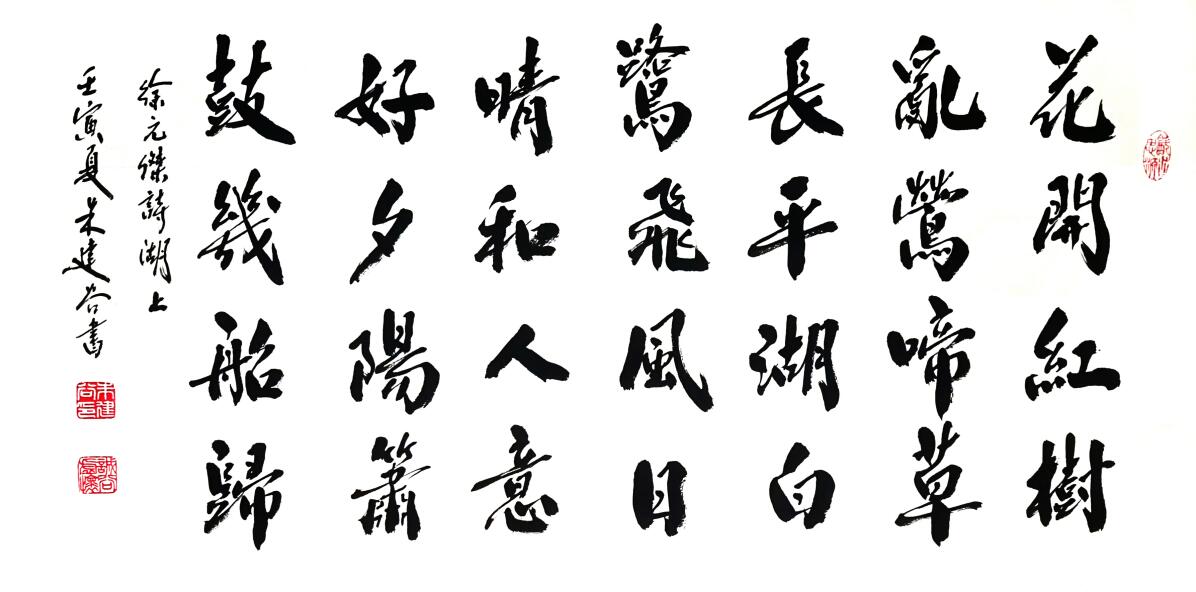 花開紅樹
亂鶯啼草
長平湖白
鷺飛風日
晴和人意
好夕陽簫
鼓幾船歸
徐元傑詩湖上
壬寅夏朱建谷書
朱建谷印